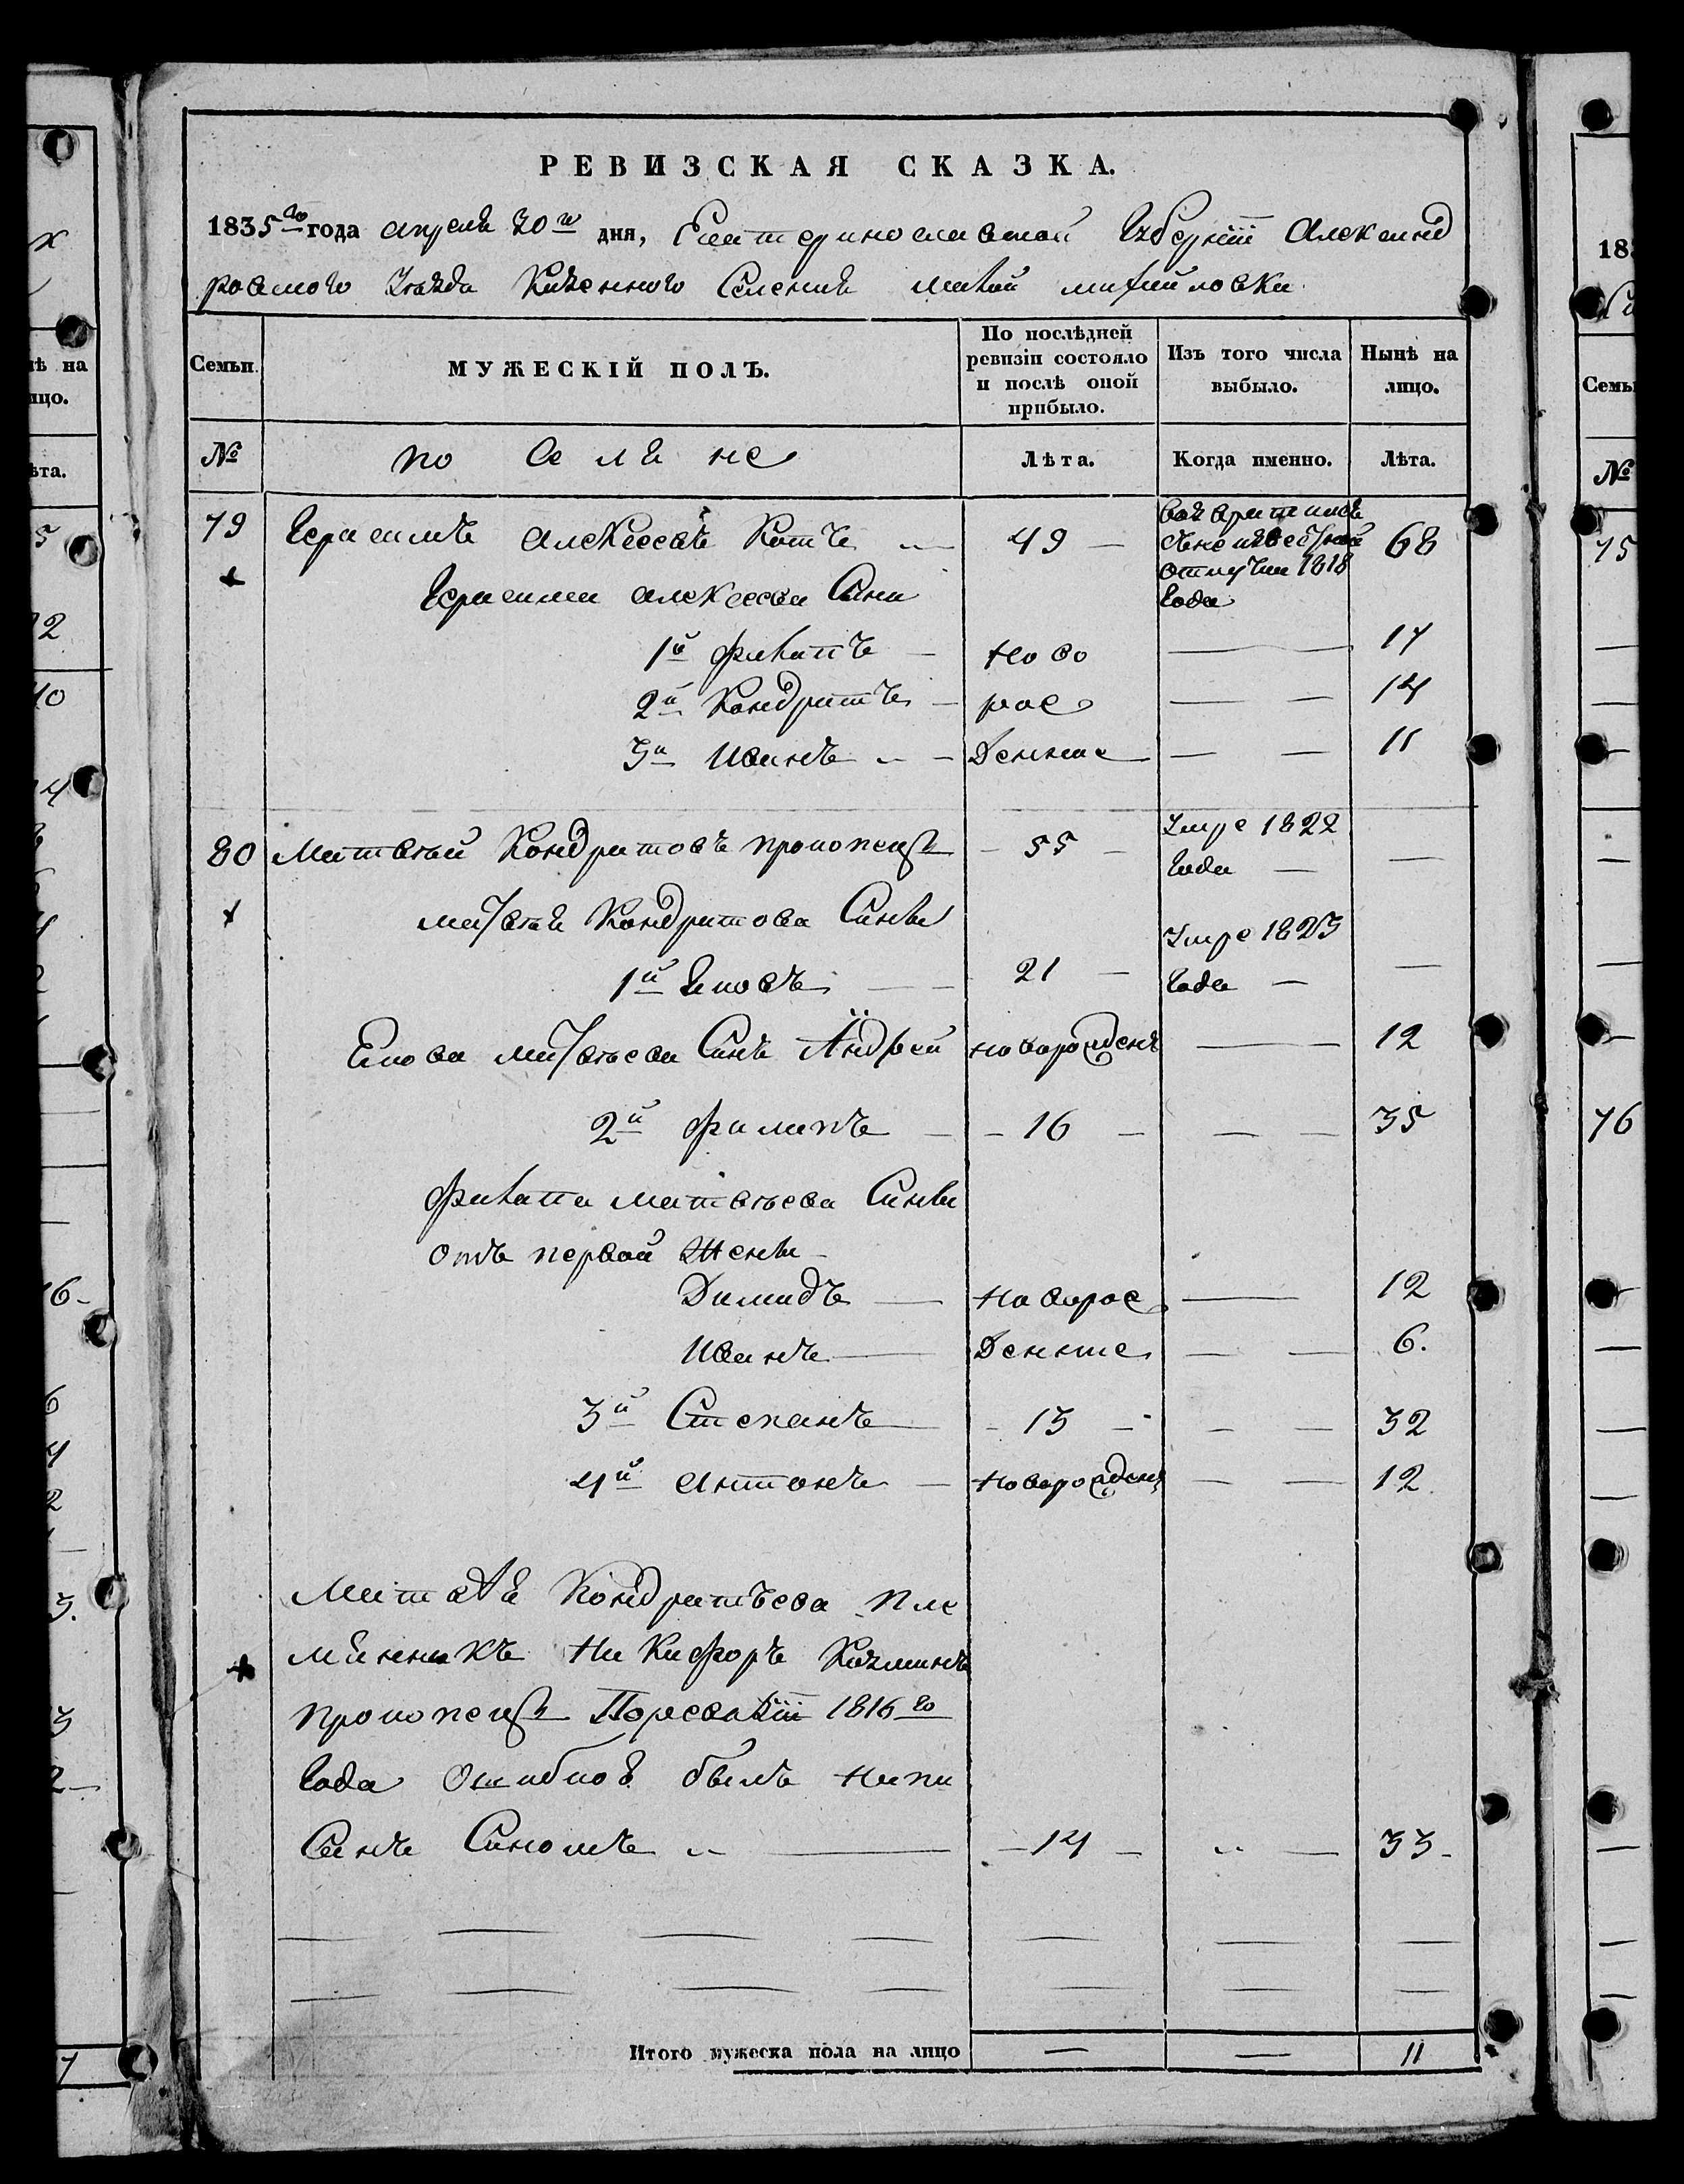 РЕВИЗСКАЯ СКАЗКА.
1835го года апреля 30го дня, Екатеринославской Губернiи Александ
ровского Уѣзда Казенного Селения малой михайловки
Семьи.
МУЖЕСКIЙ ПОЛЪ.
По послѣдней ревизiи состояло и послѣ оной прибыло.
Изъ того числа выбыло.
Нынѣ на лицо.
№
поселяне
Лѣта.
Когда именно.
Лѣта.
79 Герасимъ алексеевъ Котъ 49 68
возвратился
отлучки 1818
года
Герасима алексеева Сини
1й филипъ Ново 17
2й Кондратъ рож 14
3й Иванъ Денние 11
80 Матвѣй Кондратовъ прокопецъ 55 Умре 1822
года
матвѣя Кондратова Сины
1й Яковъ 21 Умре 1823
года
Якова матвѣева Синъ Андрей новорожденъ 12
2й филипъ 16 35
филипа матвѣева Сины
отъ первой Жены
Димидъ Новорож 12
Иванъ Денние 6.
3й Степанъ 13 32
4й антонъ Новорожденъ 12
Матвѣя Кондратьева пле
мянникъ Никифоръ Козминъ
прокопецъ Поревизiи 1816го
года Ошибкоѣ былъ напи
Санъ Синомъ 14 33
Итого мужеска пола на лицо 11